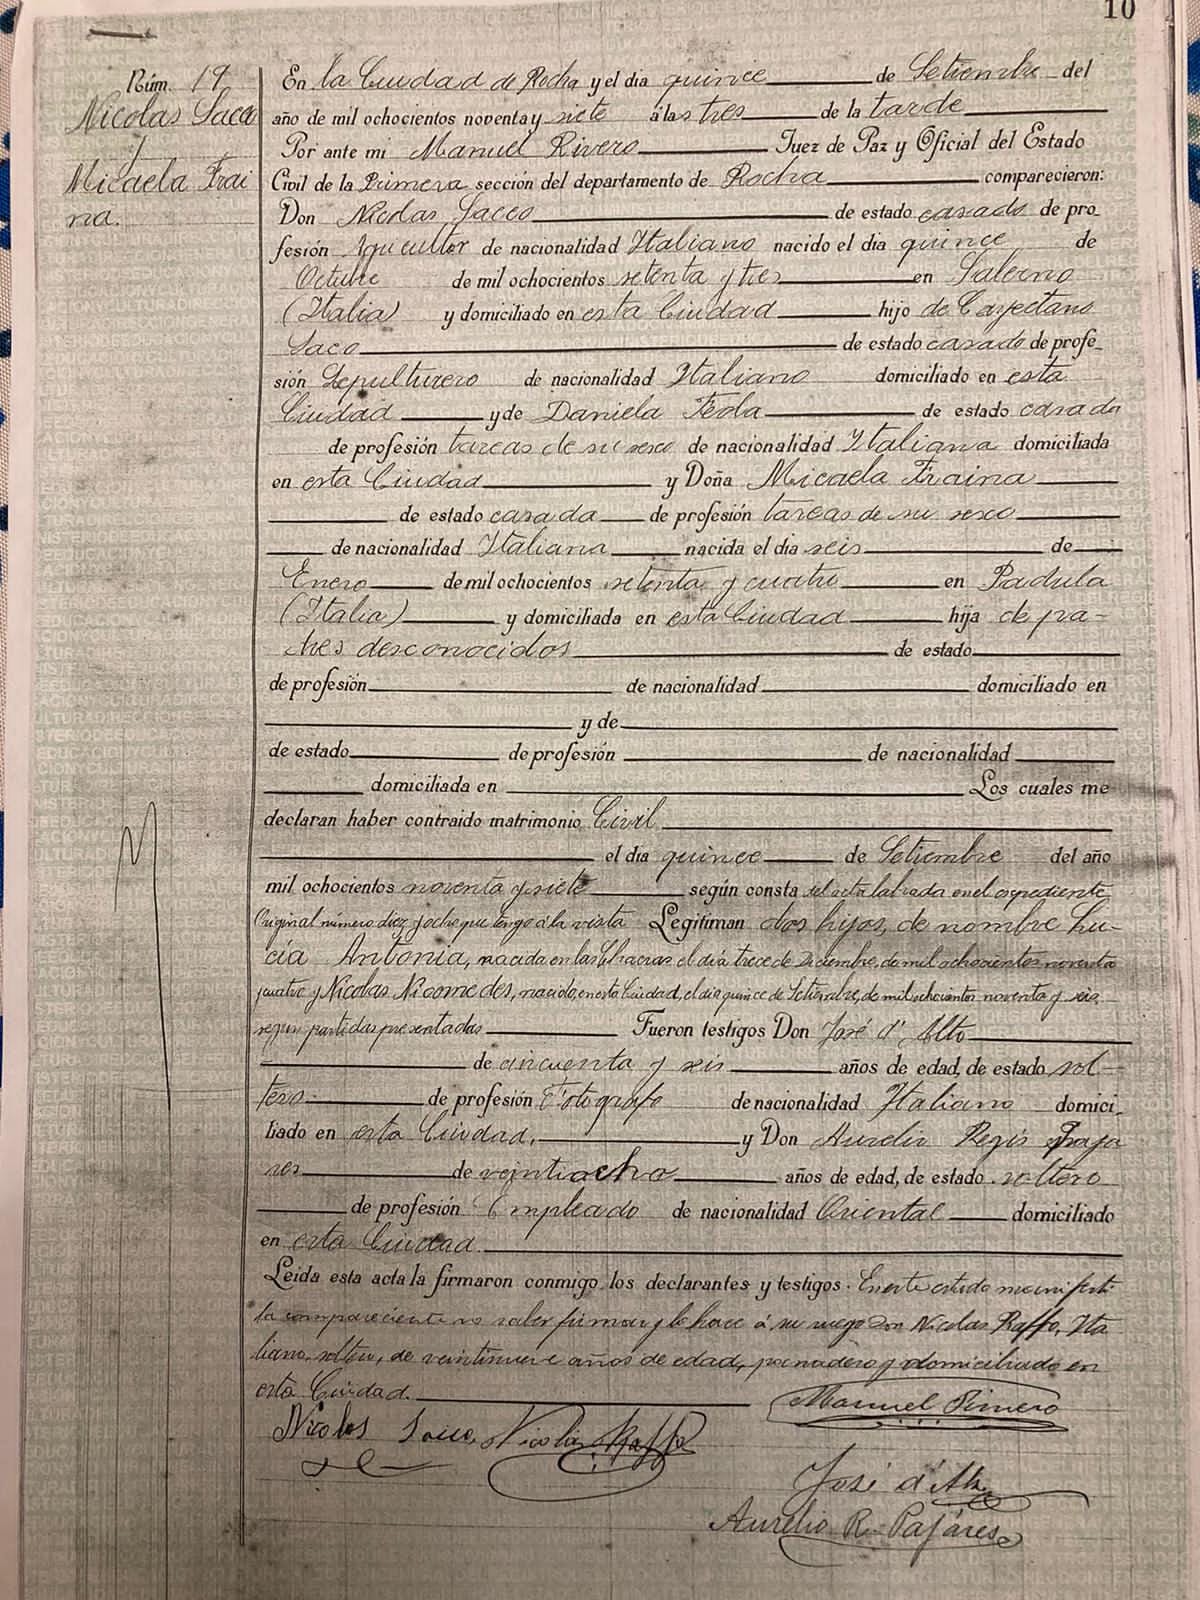 10
Núm. 19
Nicolas Saco
y
Micaela Frai
na.
En la Ciudad de Rocha y el dia quince de Setiembre del
año de mil ochocientos noventa y siete á las tres de la tarde
Por ante mi Manuel Rivero Juez de Paz y Oficial del Estado
Civil de la Primera sección del departamento de Rocha comparecieron:
Don Nicolas Sacco de estado casado de pro-
fesión Agricultor de nacionalidad Italiano nacido el dia quince de
Octubre de mil ochocientos setenta y tres en Salerno
(Italia) y domiciliado en esta Ciudad hijo de Cayetano
Saco de estado casado de profe-
sión Sepulturero de nacionalidad Italiano domiciliado en esta
Ciudad y de Daniela Feola de estado casada
de profesión tareas de su sexo de nacionalidad Italiana domiciliada
en esta Ciudad y Doña Micaela Fraina
de estado casada de profesión tareas de su sexo
de nacionalidad Italiana nacida el dia seis de
Enero de mil ochocientos setenta y cuatro en Padula
(Italia) y domiciliada en esta Ciudad hija de pa-
dres desconocidos de estado
de profesión de nacionalidad domiciliado en
y de
de estado de profesión de nacionalidad
domiciliada en Los cuales me
declaran haber contraido matrimonio Civil
el dia quince de Setiembre del año
mil ochocientos noventa y siete según consta del acta labrada en el expediente
Original número diez y ocho que tengo á la vista Legitiman dos hijos, de nombre Lu-
cía Antonia, nacida en las Chacras el día trece de Diciembre, de mil ochocientos noventa
y cuatro y Nicolas Nicomedes, nacido en esta Ciudad, el dia quince de Setiembre, de mil ochocientos noventa y seis
segun partidas presentadas Fueron testigos Don José d' Alto
de cincuenta y seis años de edad, de estado sol-
tero de profesión Fotógrafo de nacionalidad Italiano domici-
liado en esta Ciudad, y Don Aurelio Regis Paja
res de veintiocho años de edad, de estado soltero
de profesión Empleado de nacionalidad Oriental domiciliado
en esta Ciudad
Leida esta acta la firmaron conmigo los declarantes y testigos. En este estado manifestó
la compareciente no saber firmar y lo hace á su ruego Don Nicolas Raffo, Ita
liano, soltero, de veintinueve años de edad, panadero y domiciliado en
esta Ciudad.
Manuel Rivero
Nicolas Sacco Nicola Raffo
José d'Alto
Aurelio R. Pajáres